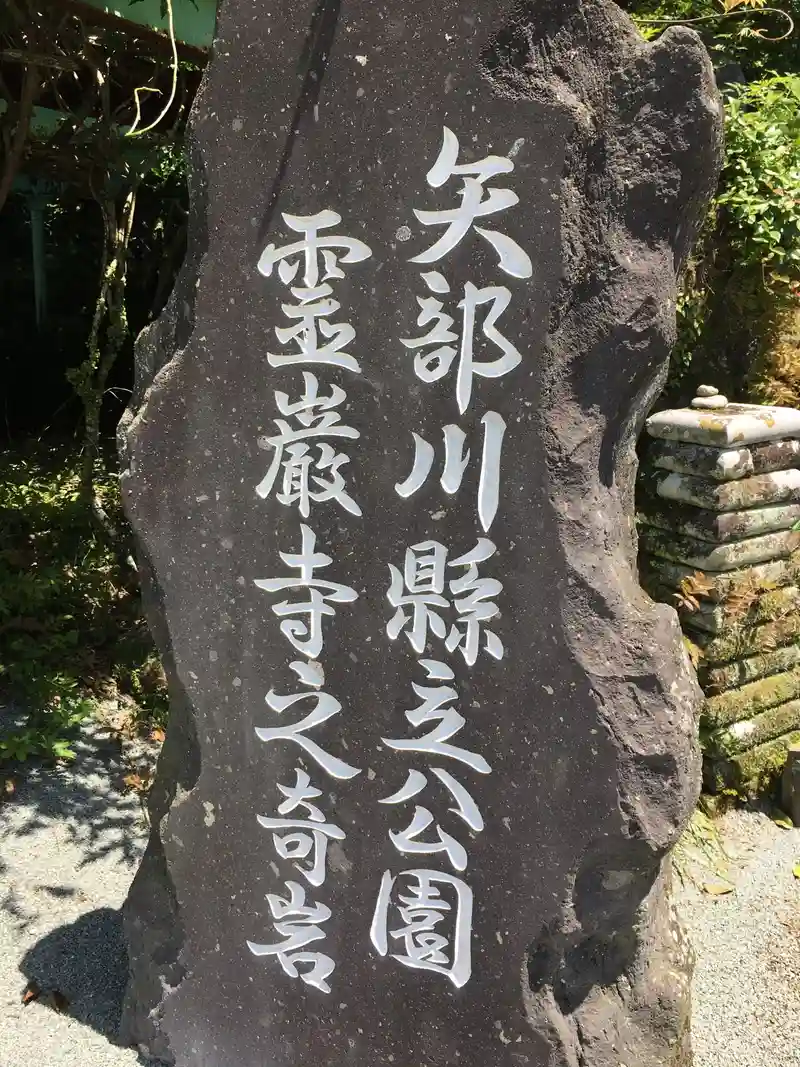 矢部川縣立公園
靈巖寺之奇岩